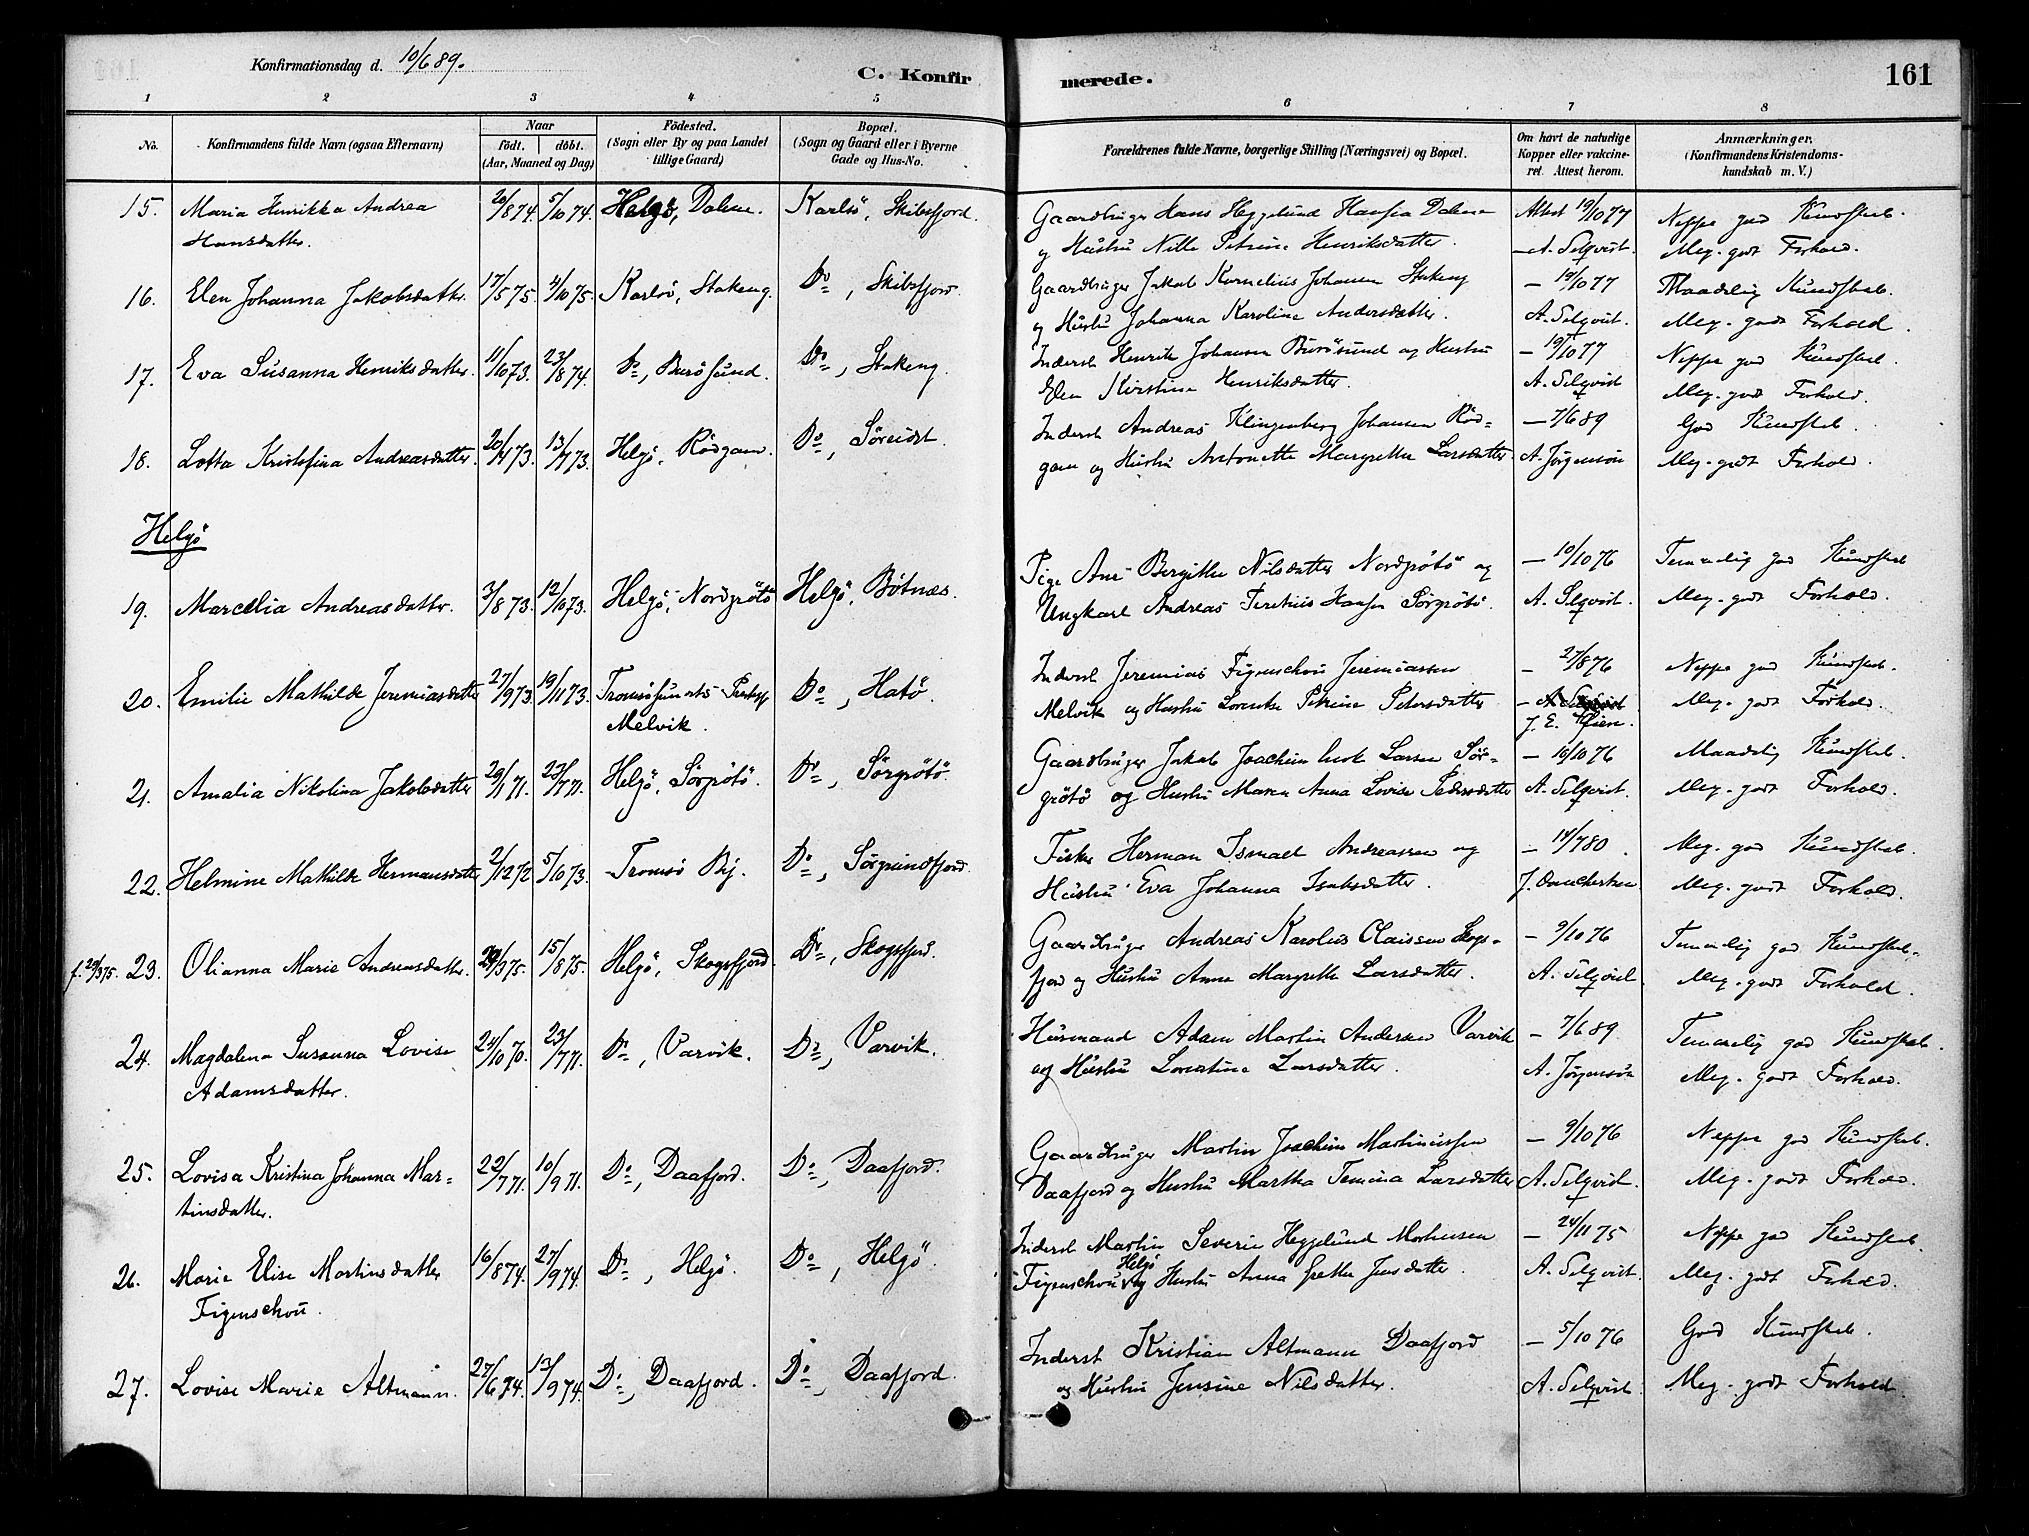 Konfirmationsdag d. 10/6 89.
C. Konfirmerede.
161
1 2 3 4 5 6 7 8
No. Konfirmandens fulde Navn (ogsaa Efternavn) Naar födt. döbt. (Aar, Maaned og Dag) Födested. (Sogn eller By og paa Landet tillige Gaard) Bopæl. (Sogn og Gaard eller i Byerne Gade og Hus-No. Forældrenes fulde Navne, borgerlige Stilling (Næringsvei) og Bopæl. Om havt de naturlige Kopper eller vakcineret. Attest herom. Anmærkninger. (Konfirmandens Kristendomskundskab m. V.)
15. Maria Henrikka Andrea 20/8 74. 5/10 74. Helgö, Dalen. Karlsö, Skibsfjord. Gaardbruger Hans Heggelund Hansen Dalen Attest 19/10 77 Neppe god Kundskab.
Hansdatter. og Hustru Nille Petrine Henriksdatter. – A. Selqvist. Meg. godt Forhold.
16. Elen Johanna Jakobsdatter 17/5 75. 4/10 75. Karlsö, Stakeng. Do, Skibsfjord. Gaardbruger Jakob Kornelius Johansen Stakeng – 19/10 77 Maadelig Kundskab.
og Hustru Johanna Karoline Andersdatter. A. Selqvist. Meg. godt Forhold.
17. Eva Susanna Henriksdatter. 11/10 73. 23/8 74. Do, Burösund. Do, Stakeng. Inderst Henrik Johansen Burösund og Hustru – 19/10 77 Neppe god Kundskab.
Elen Kirstine Henriksdatter. A. Selqvist Meg. godt Forhold.
18. Lotta Kristofina Andreasdatter. 20/4 73. 13/7 73. Helgö, Rödgam. Do, Söreidet. Inderst Andreas Klingenberg Johansen Röd= – 7/6 89 God Kundskab.
gam og Hustru Antonette Margrethe Larsdatter A. Jörgensön Meg. godt Forhold.
Helgö
19. Marcelia Andreasdatter. 3/8 73. 12/10 73. Helgö, Nordgrötö Helgö, Båtnæs. Pige Ane Bergitte Nilsdatter Nordgrötö og – 10/10 76 Temmelig god Kundskab
Ungkarl Andreas Teretius Hansen Sörgrötö. A. Selqvist. Meg. godt Forhold.
20. Emilie Mathilde Jeremiasdatter 27/9 73. 19/11 73. Tromsösunets Prestegj. Do, Hatö. Inderst Jeremias Figenschou Jeremiassen – 27/8 76 Neppe god Kundskab.
Melvik. Melvik og Hustru Lorentse Petrine Petersdatter – A. Selqvist Meg. godt Forhold.
J. E.
21. Amalia Nikolina Jakobsdatter 29/1 71. 23/7 71. Helgö, Sörgrötö. Do, Sörgrötö. Gaardbruger Jakob Joachim Larsen Sör= – 10/10 76 Maadelig Kundskab.
grötö og Hustru Maren Anna Lovise Pedersdatter A. Selqvist. Meg. godt Forhold.
22. Helmine Mathilde Hermansdatter 2/12 72 5/10 73. Tromsö By. Do, Sörgrundfjord. Fisker Herman Ismael Andreassen og – 14/7 80. Meg. god Kundskab.
Hustru Eva Johanna Isaksdatter. Meg. godt Forhold.
f. 29/3 75. 23. Olianna Marie Andreasdatter. 29/3 75. 15/8 75. Helgö, Skogsfjord. Do, Skogsfjord. Gaardbruger Andreas Karolius Claissen Skogs= – 9/10 76 Temmelig god Kundskab.
fjord og Hustru Anne Margrethe Larsdatter. A. Selqvist. Meg. godt Forhold.
24. Magdalena Susanna Lovise 24/10 70. 23/7 71. Do, Varvik. Do, Varvik. Husmand Adam Martin Andersen Varvik – 7/6 89 Temmelig god Kundskab.
Adamsdatter. og Hustru Lorentine Larsdatter. A. Jörgensön Meg. godt Forhold.
25. Lovisa Kristina Johanna Mar= 22/7 71. 10/9 71. Do, Daafjord. Do, Daafjord. Gaardbruger Martin Joachim Martinussen – 9/10 76 Neppe god Kundskab.
tinsdatter. Daafjord og Hustru Martha Temina Larsdatter A. Selqvist. Meg. godt Forhold.
26. Marie Elise Martinsdatter 16/8 74. 27/9 74. Do, Helgö. Do, Helgö. Inderst Martin Severin Heggelund Mortensen – 24/11 75 Neppe god Kundskab.
Figenschou. Figenschou Helgö og Hustru Anna Grethe Jensdatter. A. Selqvist. Meg. godt Forhold.
27. Lovise Marie Altmann. 27/6 74. 13/9 74. Do, Daafjord. Do, Daafjord. Inderst Kristian Altmann Daafjord – 5/10 76 God Kundskab.
og Hustru Jensine Nilsdatter. A. Selqvist. Meg. godt Forhold.